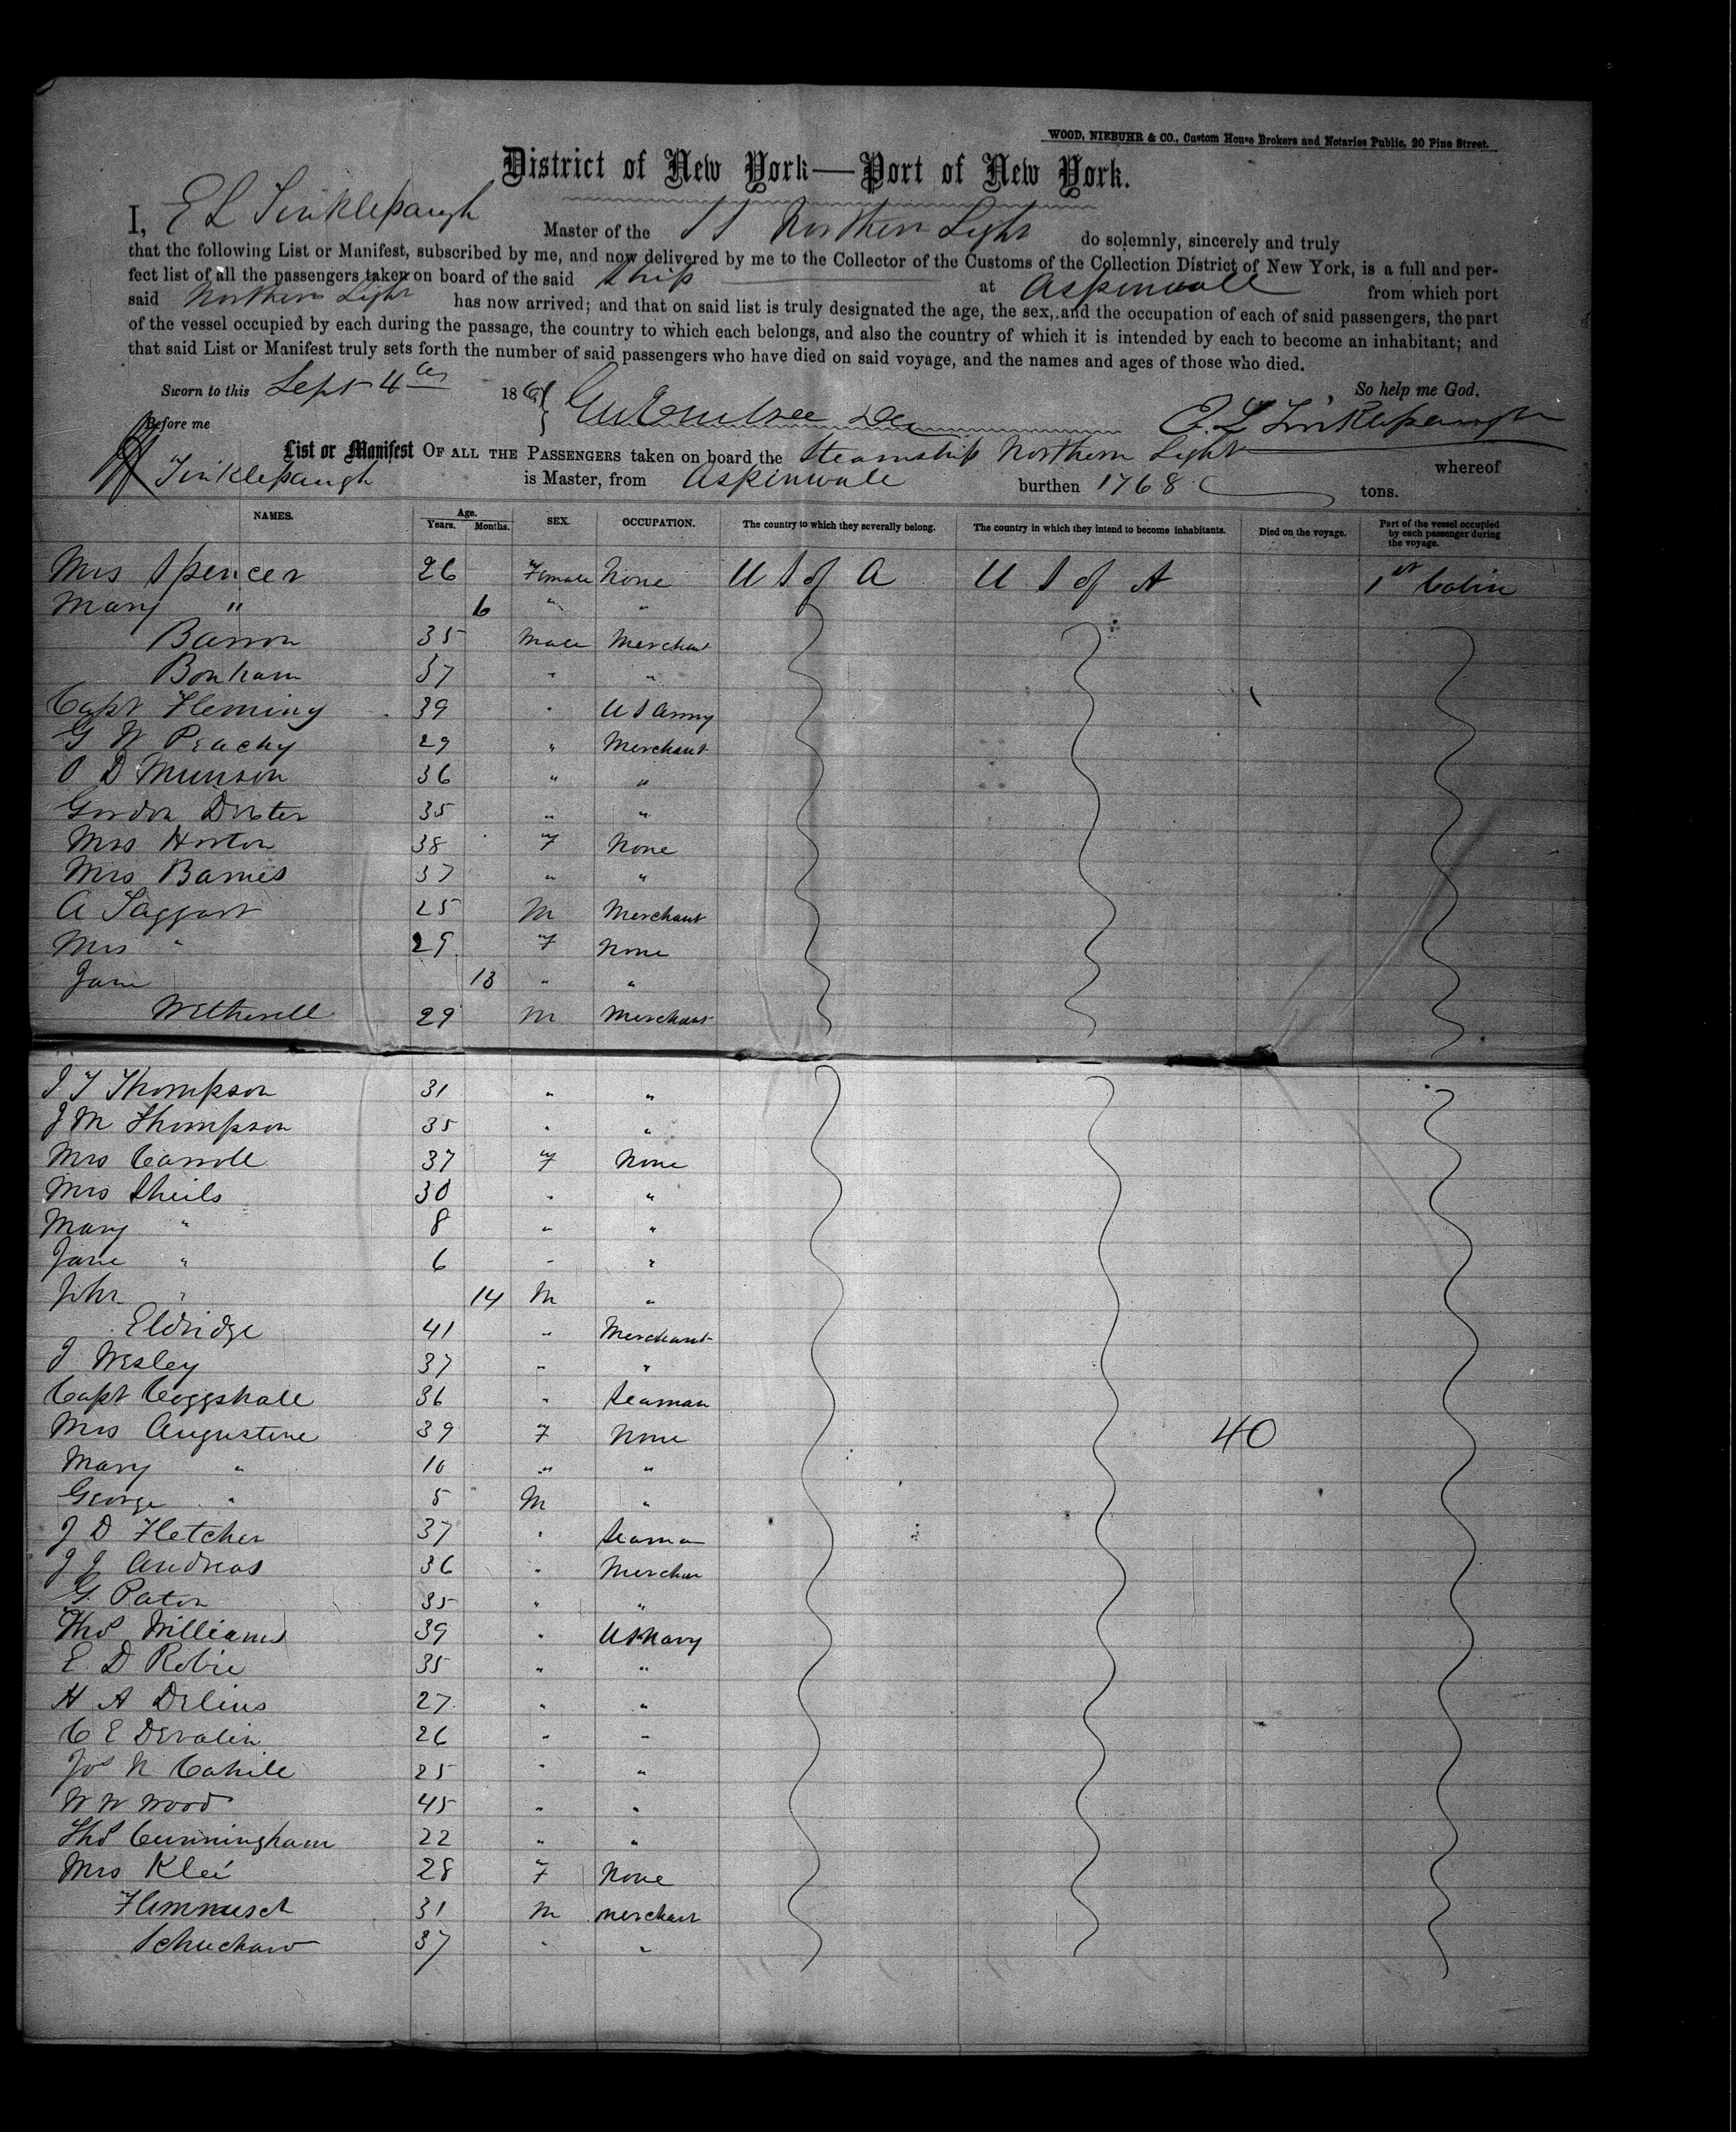 WOOD, NIEBUHR & CO., Custom House Brokers and Notaries Public, 20 Pine Street.
District of New York—Port of New York.
I, E L Tinklepaugh Master of the SS Northern Light do solemnly, sincerely and truly
that the following List or Manifest, subscribed by me, and now delivered by me to the Collector of the Customs of the Collection District of New York, is a full and per-
fect list of all the passengers taken on board of the said Ship at Aspinwall from which port
said Northern Light has now arrived; and that on said list is truly designated the age, the sex, and the occupation of each of said passengers, the part
of the vessel occupied by each during the passage, the country to which each belongs, and also the country of which it is intended by each to become an inhabitant; and
that said List or Manifest truly sets forth the number of said passengers who have died on said voyage, and the names and ages of those who died.
Sworn to this Sept 4 186 So help me God.
Before me E. L Tinklepaugh
List or Manifest OF ALL THE PASSENGERS taken on board the Steamship Northern Light whereof
Tinklepaugh is Master, from Aspinwale burthen 1768 tons.
NAMES. Age. Years. Months. SEX. OCCUPATION. The country to which they severally belong. The country in which they intend to become inhabitants. Died on the voyage. Part of the vessel occupied by each passenger during the voyage.
Mrs Spencer 26 Female None U S of A U S of A 1st Cabin
Mary " 6 " "
Barron 35 Male Merchant
Bonham 37 " "
Capt Fleming 39 " U S Army
G W Peachy 29 " Merchant
O D Munson 36 " "
Gordon Dexter 35 " "
Mrs Horton 38 F None
Mrs Barnes 37 " "
A Taggart 25 M Merchant
Mrs " 29 F None
Jane 13 " "
Wetherell 29 M Merchant
J T Thompson 31 " "
J M Thompson 35 " "
Mrs Carroll 37 F None
Mrs Sheils 30 " "
Mary " 8 " "
Jane " 6 " "
John " 14 M "
Eldridge 41 " Merchant
J Wesley 37 " "
Capt Coggshall 36 " Seaman
Mrs Augustine 39 F None 40
Mary " 10 " "
George " 5 M "
J D Fletcher 37 " Seaman
J J Andreas 36 " Merchan
G. Paton 35 " "
Thos Williams 39 " U S Navy
E. D Robie 35 " "
H A Delius 27 " "
C E Devalin 26 " "
Jos N Cahill 25 " "
W W Wood 45 " "
Thos Cunningham 22 " "
Mrs Klei 28 F None
Flemmisch 31 M Merchant
Schuchard 37 " "